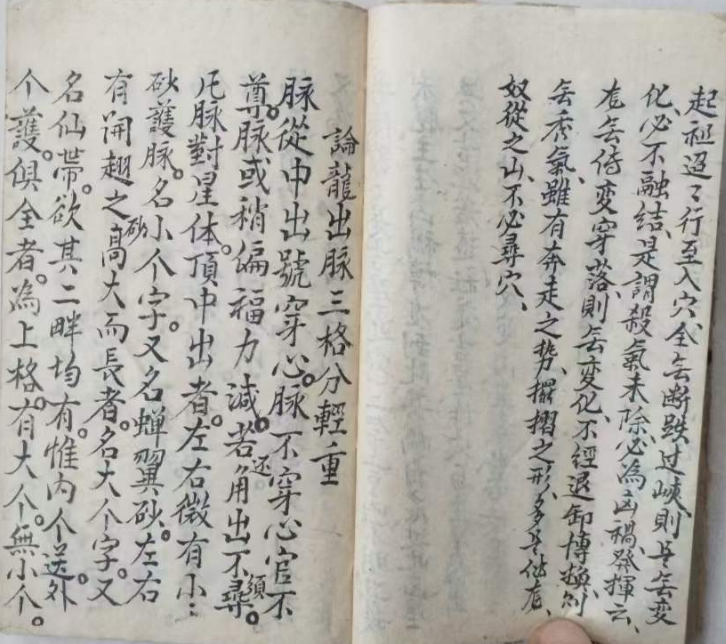 起祖迢〻行至入穴、全无断跌过峽、則是无变
化、必不融結、是謂殺氣未除、必為凶禍、發揮云、
龙无傳变穿落、則无变化、不經退卸博換、則
无秀氣、雖有奔走之势、擺摺之形、多是他龙、
奴從之山、不必尋穴、
論龍出脉三格分輕重
脉從中出號穿心。脉不穿心官不
尊。脉或稍偏福力減。若还角出不須尋。
凡脉對星体。頂中出者。左右微有小〻
砂護脉。名小个字。又名蟬翼砂。左右
有開趐之砂高大而長者。名大个字。又
名仙帶。欲其二畔均有。惟内个送。外
个護。俱全者。為上格。有大个。無小个。